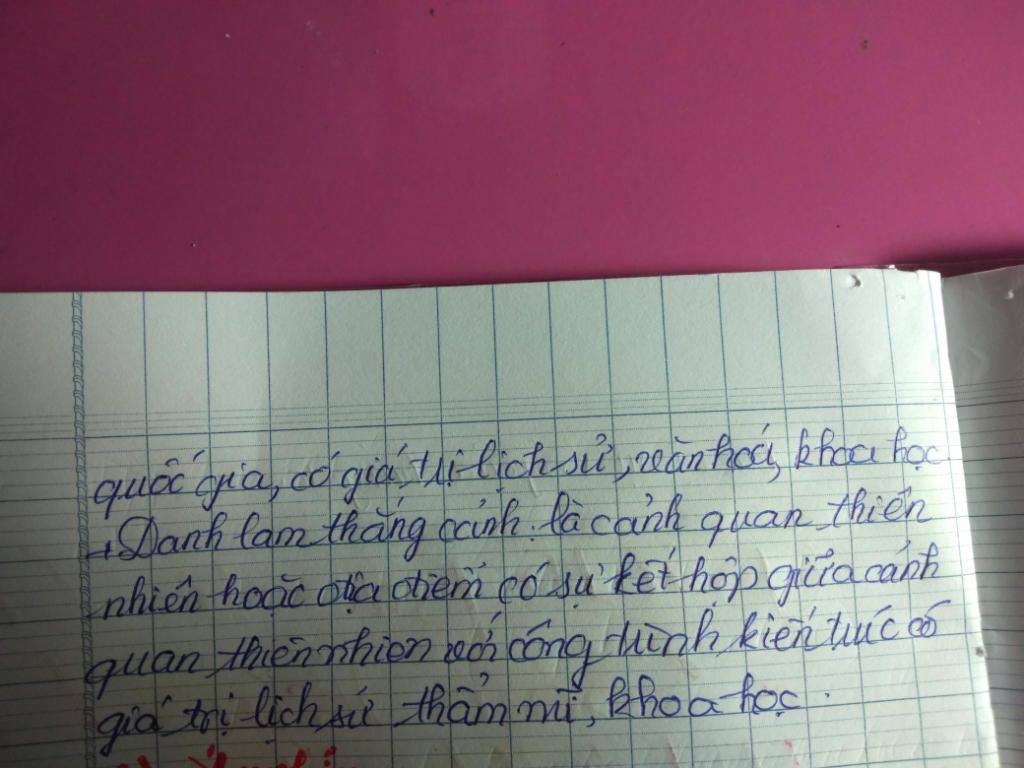 quốc gia, có giá trị lịch sử, văn hoá, khoa học
+ Danh lam thắng cảnh: là cảnh quan thiên
nhiên hoặc địa điểm có sự kết hợp giữa cảnh
quan thiên nhiên với công trình kiến trúc có
giá trị lịch sử thẩm mĩ, khoa học.